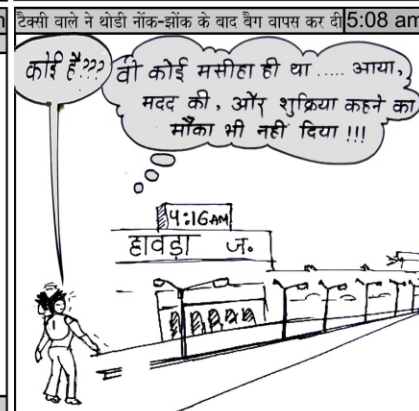 टैक्सी वाले ने थोडी नोंक-झोंक के बाद बैग वापस कर दी
5:08 am
कोई है???
वो कोई मसीहा ही था ..... आया,
मदद की, और शुक्रिया कहने का
मौका भी नही दिया !!!
4:16AM
हावड़ा ज॰